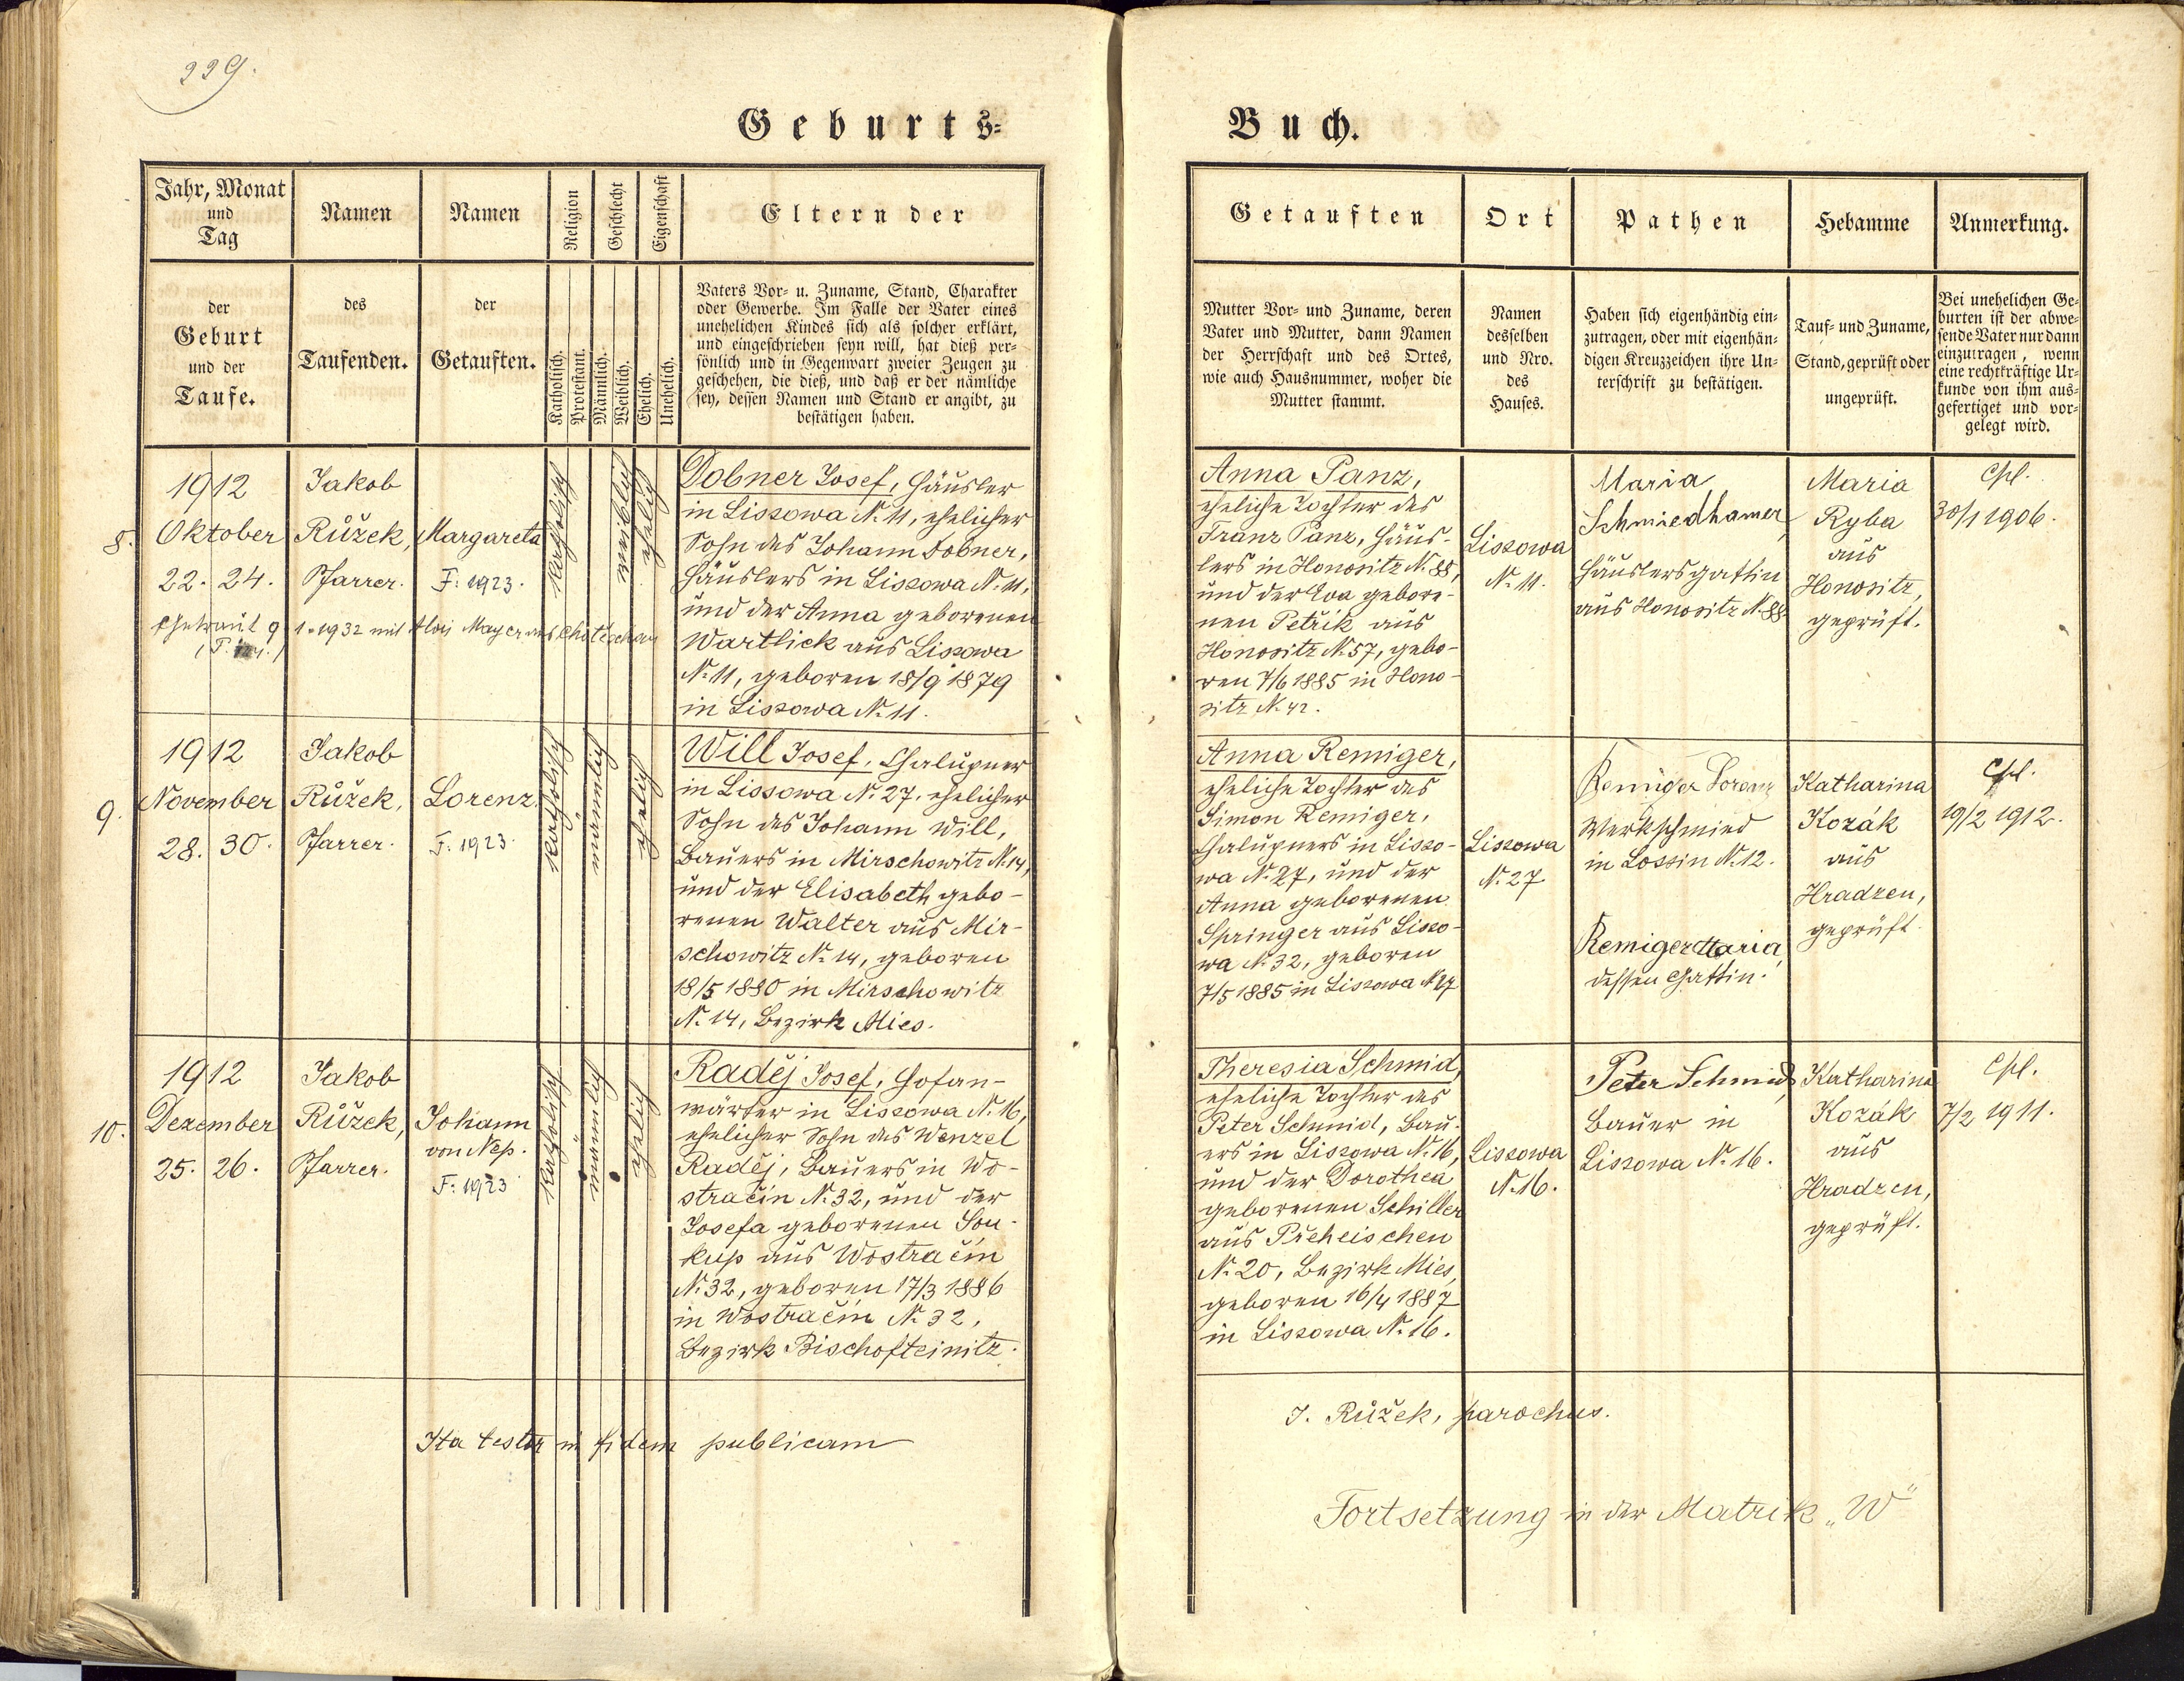 229.
Geburts-
Buch.
Jahr, Monat
und
Tag
der
Geburt
und der
Taufe.
Namen
des
Taufenden.
Namen
der
Getauften.
Religion
Katholisch.
Protestant.
Geschlecht
Männlich.
Weiblich.
Eigenschaft
Ehelich.
Unehelich.
Eltern der
Vaters Vor- u. Zuname, Stand, Charakter
oder Gewerbe. Im Falle der Vater eines
unehelichen Kindes sich als solcher erklärt,
und eingeschrieben seyn will, hat dieß per-
sönlich und in Gegenwart zweier Zeugen zu
geschehen, die dieß, und daß er der nämliche
sey, dessen Namen und Stand er angibt, zu
bestätigen haben.
Getauften
Mutter Vor- und Zuname, deren
Vater und Mutter, dann Namen
der Herrschaft und des Ortes,
wie auch Hausnummer, woher die
Mutter stammt.
Ort
Namen
desselben
und Nro.
des
Hauses.
Pathen
Haben sich eigenhändig ein-
zutragen, oder mit eigenhän-
digen Kreuzzeichen ihre Un-
terschrift zu bestätigen.
Hebamme
Tauf- und Zuname,
Stand, geprüft oder
ungeprüft.
Anmerkung.
Bei unehelichen Ge-
burten ist der abwe-
sende Vater nur dann
einzutragen, wenn
eine rechtkräftige Ur-
kunde von ihm aus-
gefertiget und vor-
gelegt wird.
8.
1912
Oktober
22. 24.
Jakob
Růžek,
Pfarrer.
Margareta
F: 1923.
1932 mit Alois Mayer aus Chotěschau
katholisch
weiblich
ehelich
Dobner Josef, Häusler
in Lissowa N. 11, ehelicher
Sohn des Johann Dobner,
Häuslers in Lissowa N. 11,
und der Anna geborenen
Wartlick aus Lissowa
N. 11, geboren 18/9 1879
in Lissowa N. 11.
Anna Panz,
eheliche Tochter des
Franz Panz, Häus-
lers in Honositz N. 88,
und der Eva gebore-
nen Petřik aus
Honositz N. 57, gebo-
ren 7/6 1885 in Hono-
sitz N. 42.
Lissowa
N. 11.
Maria
Schmiedhamer,
Häuslersgattin
aus Honositz N. 88.
Maria
Ryba
aus
Honositz,
geprüft.
30/1 1906.
9.
1912
November
28. 30.
Jakob
Růžek,
Pfarrer.
Lorenz.
F: 1923.
katholisch
männlich
ehelich
Will Josef, Chalupner
in Lissowa N. 27, ehelicher
Sohn des Johann Will,
Bauers in Mirschowitz N. 14,
und der Elisabeth gebo-
renen Walter aus Mir-
schowitz N. 14, geboren
18/5 1880 in Mirschowitz
N. 14, Bezirk Mies.
Anna Remiger,
eheliche Tochter des
Simon Remiger,
Chalupners in Lisso-
wa N. 27, und der
Anna geborenen
Springer aus Lisso-
wa N. 32, geboren
7/5 1885 in Lissowa N. 27
Lissowa
N. 27.
Remiger Lorenz
Werkschmied
in Lossin N. 12.
Remiger Maria,
dessen Gattin.
Katharina
Kozák
aus
Hradzen,
geprüft.
19/2 1912.
10.
1912
Dezember
25. 26.
Jakob
Růžek,
Pfarrer.
Johann
von Nep.
F: 1923
katholisch
männlich
ehelich
Raděj Josef, Hofan-
wärter in Lissowa N. 16,
ehelicher Sohn des Wenzel
Raděj, Bauers in Wo-
stračin N. 32, und der
Josefa geborenen Sou-
kup aus Wostračin
N. 32, geboren 17/3 1886
in Wostračin N. 32,
Bezirk Bischofteinitz.
Theresia Schmid,
eheliche Tochter des
Peter Schmid, Bau-
ers in Lissowa N. 16,
und der Dorothea
geborenen Schiller
aus Přeheischen
N. 20, Bezirk Mies,
geboren 16/4 1887
in Lissowa N. 16.
Lissowa
N. 16.
Peter Schmid,
Bauer in
Lissowa N. 16.
Katharina
Kozák
aus
Hradzen,
geprüft.
7/2 1911.
Ita testor in fidem publicam
J. Růžek, parochus.
Fortsetzung in der Matrik „W"